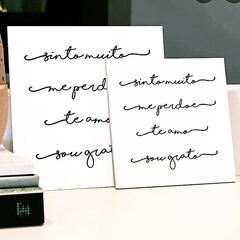 sinto muito
me perdo
te amo
sou grato
sinto muito
me perdoe
te amo
sou grato